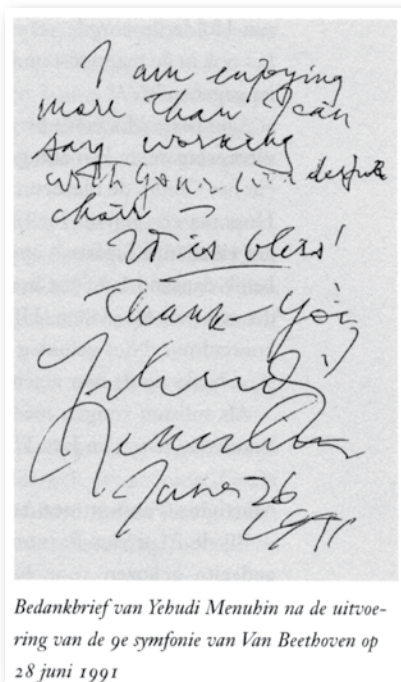 I am enjoying
more than I can
say working
with your wonderful
choir –
bless!
Thank you
Yehudi
Menuhin
June 26
1991
Bedankbrief van Yehudi Menuhin na de uitvoe-
ring van de 9e symfonie van Van Beethoven op
28 juni 1991